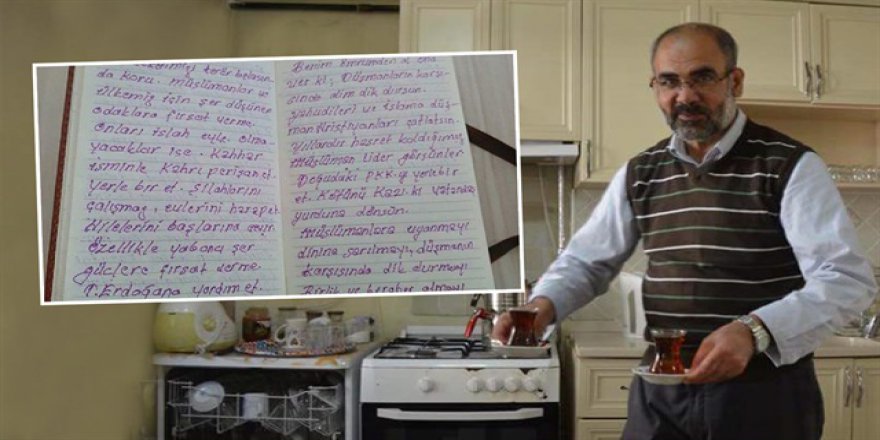 terör belasın-
da koru. Müslümanlar ve
ülkemiz için şer düşünen
odaklara fırsat verme.
Onları islah eyle. olma-
yacaklar ise. Kahhar
isminle kahrı perişan et.
yerle bir et. silahlarını
çalışmaz, evlerini harap et
Hilelerini başlarına
Özellikle yabancı şer
güçlere fırsat verme.
T. Erdoğana yardım et.
Benim ömrümden al ona
ver ki; Düşmanların karşı-
sında dim dik dursun.
yahudileri ve islama düş-
man Hristiyanları çatlatsın.
Yıllardır hasret kaldığımız
Müslüman lider görsünler
Doğudaki PKK.yı yerlebir
et. Kökünü kazı ki vatandaş
yurduna dönsün.
Müslümanlara uyanmayı
dinine sarılmayı, düşmanın
karşısında dik durmayı
Birlik ve beraber olmayı